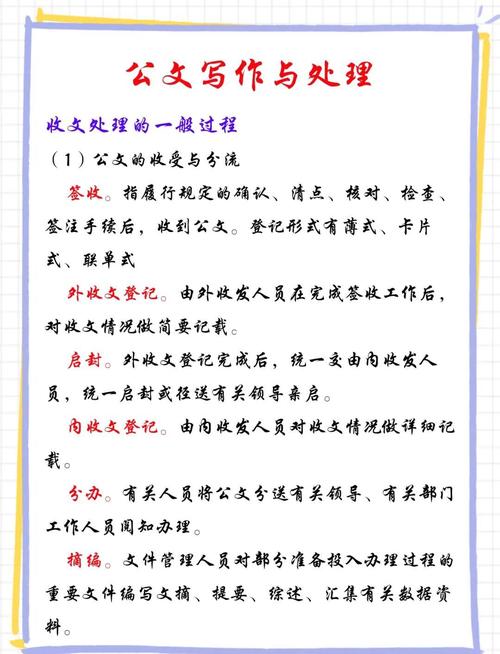 公文写作与处理
收文处理的一般过程
（1）公文的收受与分流
签收。指履行规定的确认、清点、核对、检查、
签注手续后，收到公文。登记形式有薄式、卡片
式、联单式
外收文登记。由外收发人员在完成签收工作后，
对收文情况做简要记载。
启封。外收文登记完成后，统一交由内收发人
员，统一启封或径送有关领导亲启。
内收文登记。由内收发人员对收文情况做详细记
载。
分办。有关人员将公文分送有关领导、有关部门
工作人员阅知办理。
摘编。文件管理人员对部分准备投入办理过程的
重要文件编写文摘、提要、综述、汇集有关数据资
料。